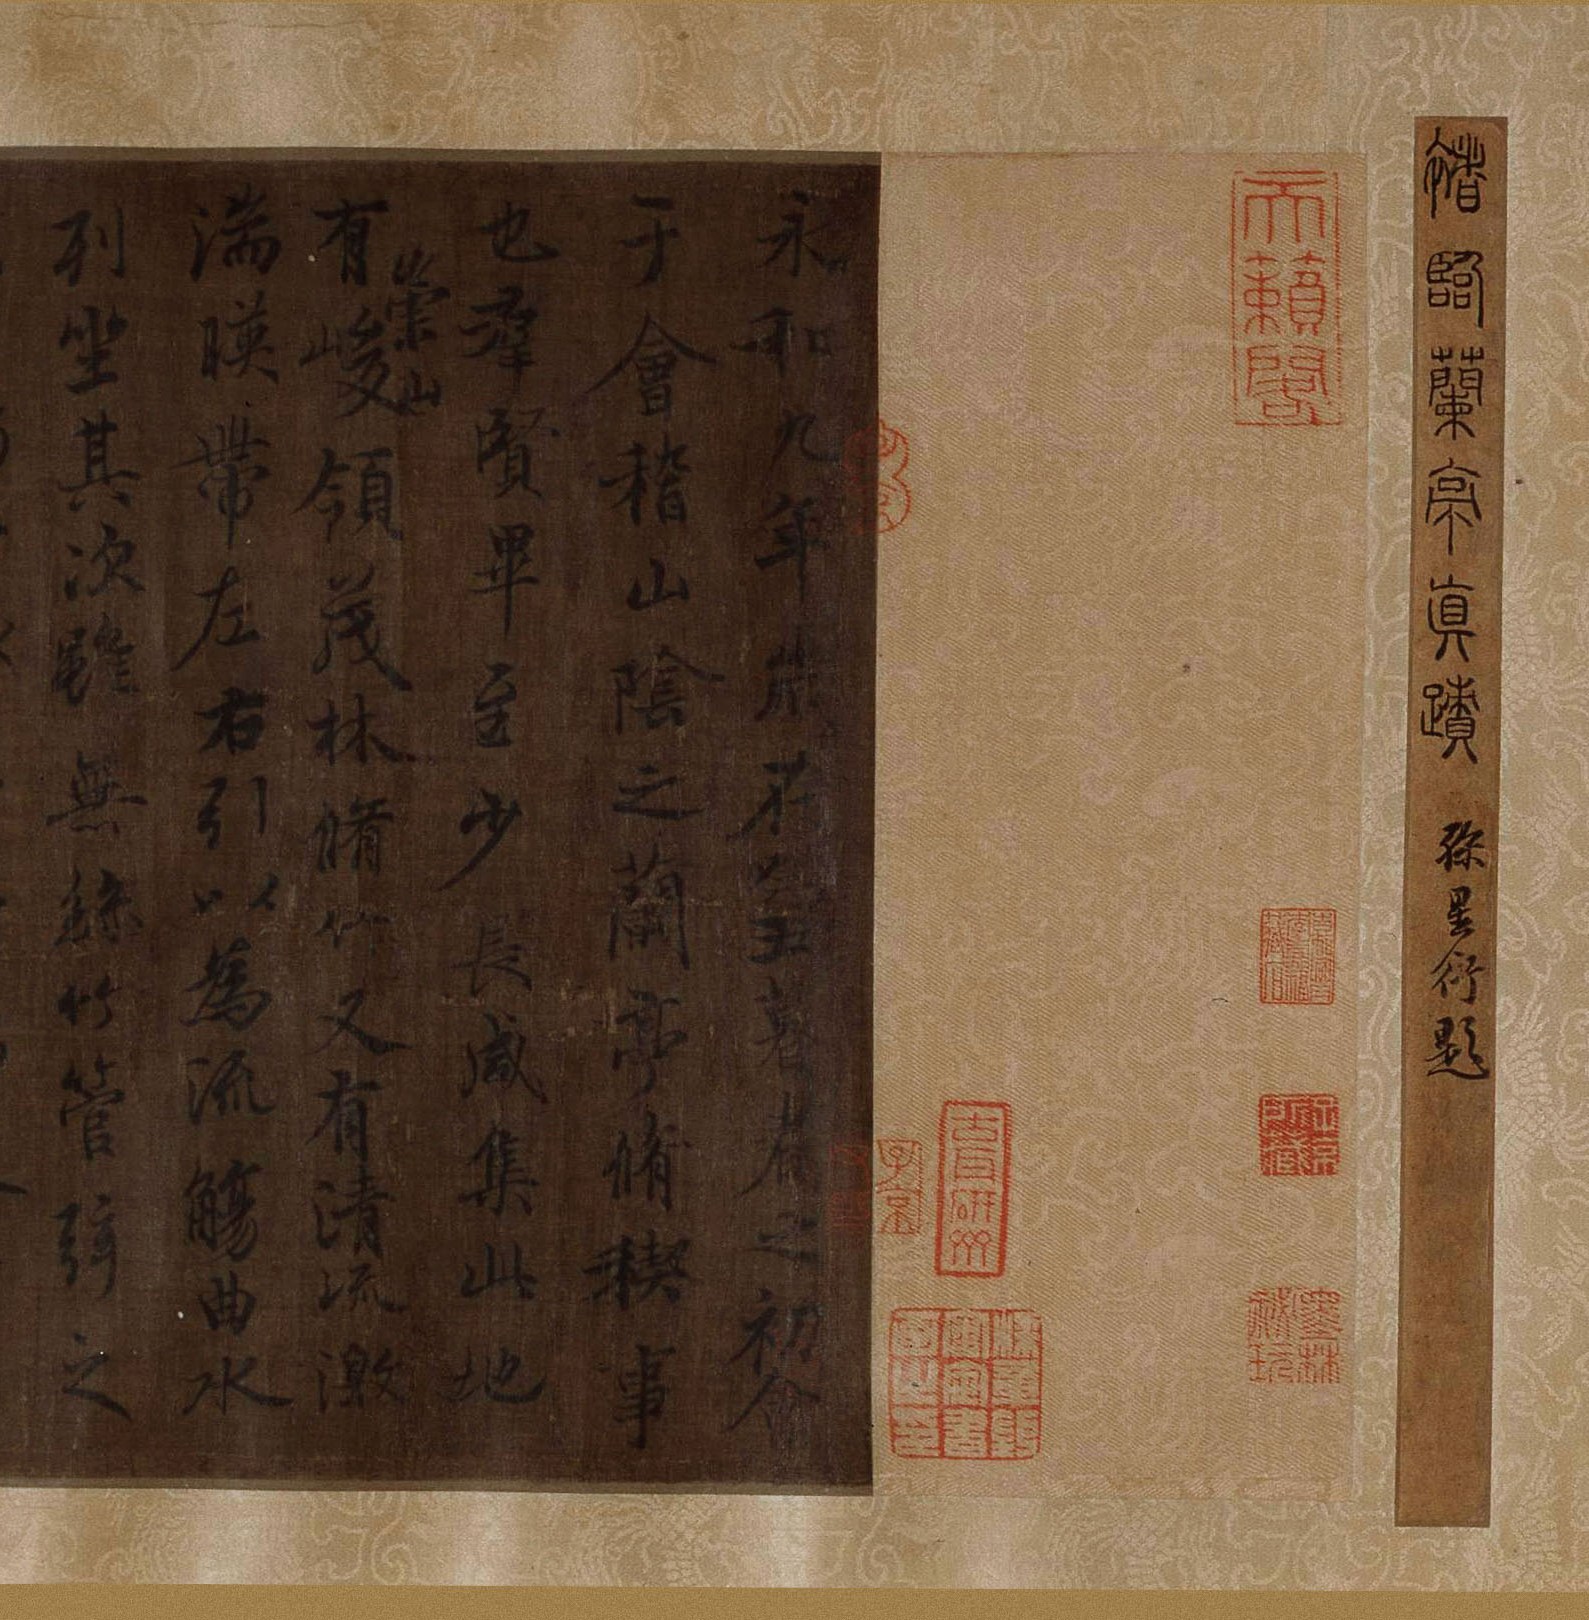 褚臨蘭亭真蹟 孫星衍題
天籟閣
子京
墨林祕玩
永和九年歲在癸丑暮春之初會
于會稽山陰之蘭亭脩稧事
也羣賢畢至少長咸集此地
有崇山峻領茂林脩竹又有清流激
湍暎帶左右引以為流觴曲水
列坐其次雖無絲竹管弦之